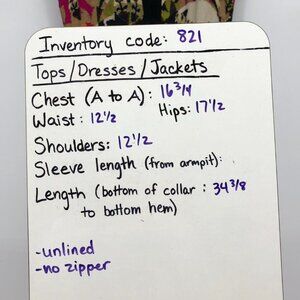 Inventory code: 821
Tops/Dresses/Jackets
Chest (A to A): 16 3/4
Waist: 12 1/2 Hips: 17 1/2
Shoulders: 12 1/2
Sleeve length (from armpit):
Length (bottom of collar : 34 3/8
to bottom hem)
-unlined
-no zipper